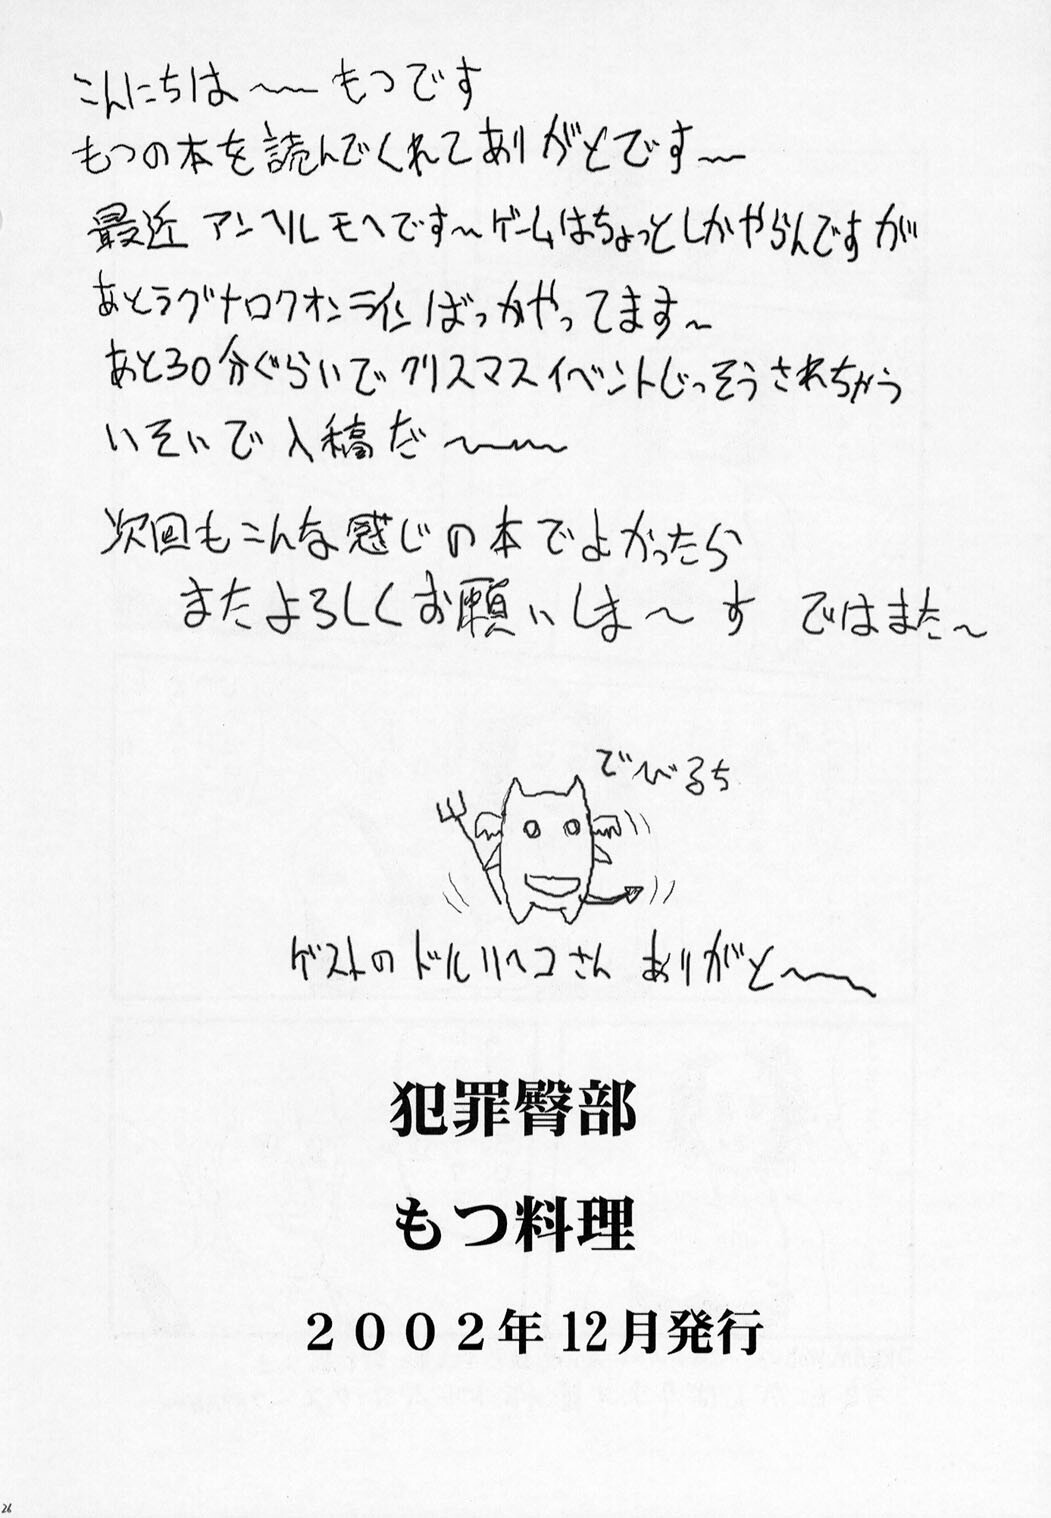 こんにちは〜〜 もつです
もつの本を読んでくれてありがとです〜
最近 アンヘルモヘです〜ゲームはちょっとしかやらんですが
あとラグナロクオンラインばっかやってます〜
あと30分ぐらいでクリスマスイベントじっそうされちゃう
いそいで入稿だ〜〜〜
次回もこんな感じの本でよかったら
またよろしくお願いしま〜す ではまた〜
でびるち
ゲストのドルリヘコさん ありがと〜〜
犯罪臀部
もつ料理
２００２年12月発行
26